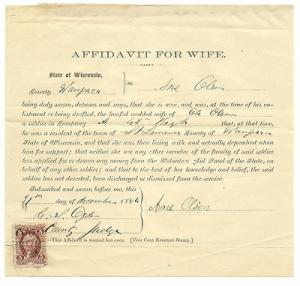 AFFIDAVIT FOR WIFE.
State of Wisconsin,
County Waupaca Ane Olson
being duly sworn, deposes and says, that she is now, and was, at the time of his en-
listment or being drafted, the lawful wedded wife of Ole Olson
a soldier in Company that, at that time,
he was a resident of the town of St Lawrence County of Waupaca
State of Wisconsin, and that she was then living with and actually dependent upon
him for support; that neither she nor any other member of the family of said soldier has
applied for or drawn any money from the Volunteer Aid Fund of the State, on
behalf of any other soldier; and that to the best of her knowledge and belief, the said
soldier has not deserted, been discharged or dismissed from the service.
Subscribed and sworn before me, this
day of December 1864
Ane Olson
County Judge
This Affidavit is wanted but once. [Five Cent Revenue Stamp.]